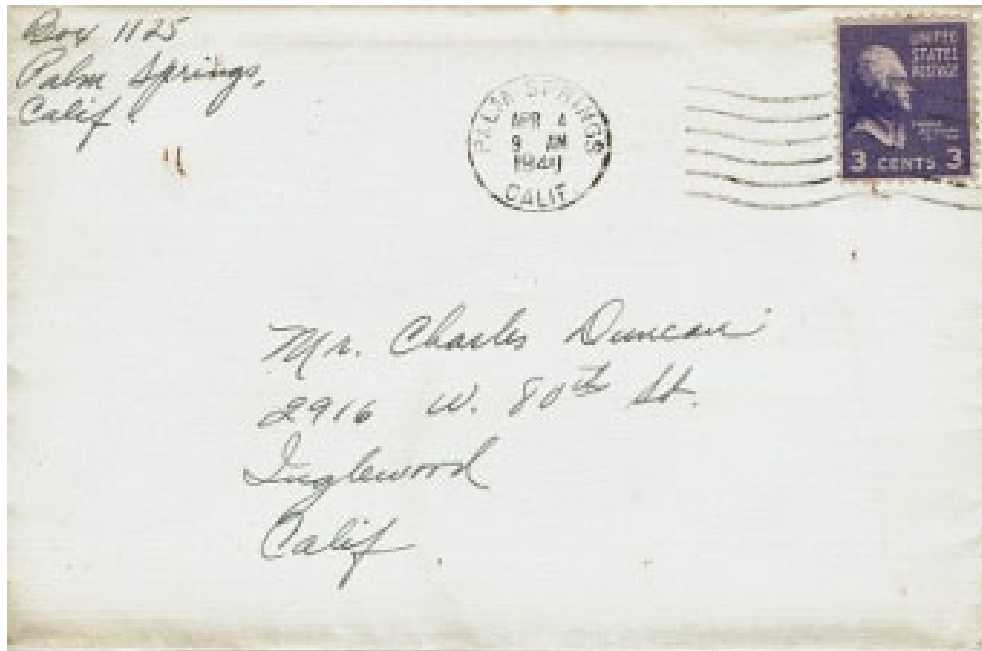 Box 1125
Palm Springs,
Calif
PALM SPRINGS
APR 4
9 AM
CALIF
UNITED
STATES
POSTAGE
3 CENTS 3
Mr. Charles Duncan
2916 W. 80th St.
Inglewood
Calif.